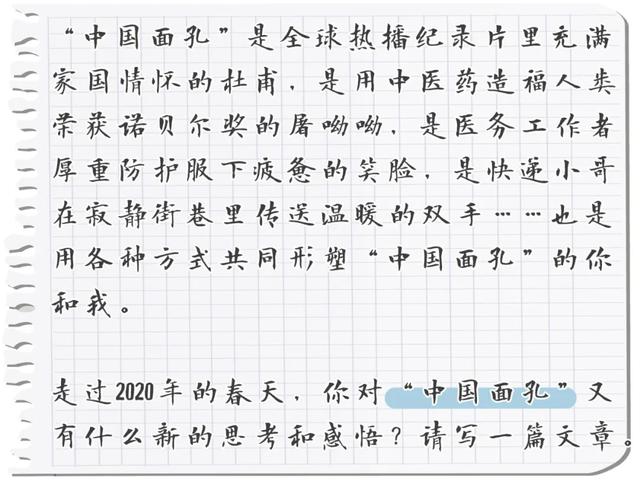 “中国面孔”是全球热播纪录片里充满
家国情怀的杜甫，是用中医药造福人类
荣获诺贝尔奖的屠呦呦，是医务工作者
厚重防护服下疲惫的笑脸，是快递小哥
在寂静街巷里传送温暖的双手……也是
用各种方式共同形塑“中国面孔”的你
和我。
走过2020年的春天，你对“中国面孔”又
有什么新的思考和感悟？请写一篇文章。